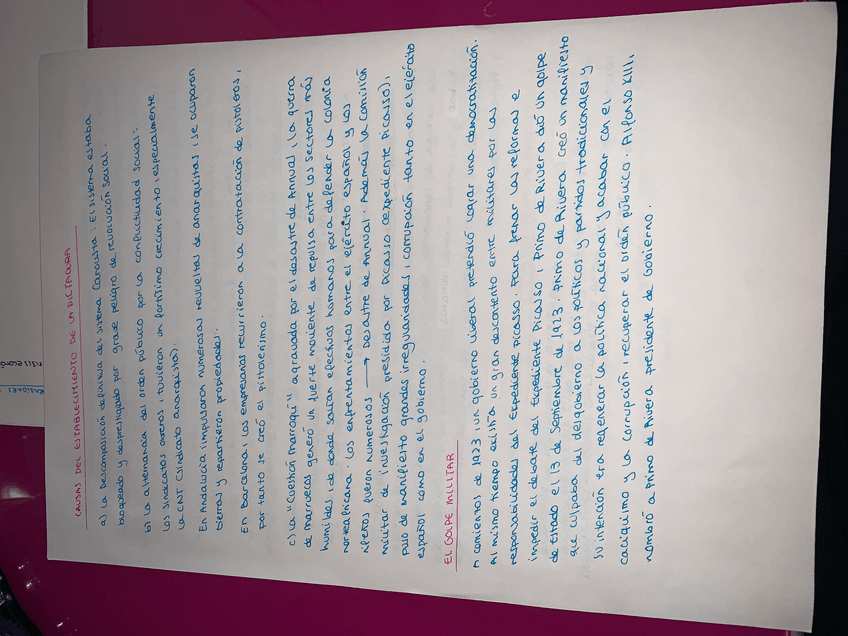 CAUSAS DEL ESTABLECIMIENTO DE LA DICTADURA
a) La Descomposición definitiva del sistema Canovista: El sistema estaba
bloqueado y desprestigiado por grave peligro de revolución social.
b) La alternancia del orden público por la conflictividad social:
Los sindicatos obreros tuvieron un fortísimo crecimiento, especialmente
la CNT (sindicato anarquista).
En Andalucía, impulsaron numerosas revueltas de anarquitas, se ocuparon
tierras y repartieron propiedades.
En Barcelona, los empresarios recurrieron a la contratación de pistoleros,
por tanto se creó el pistolerismo.
c) La "Cuestión Marroquí" agravada por el desastre de Annual, la guerra
de marruecos generó un fuerte moviente de repulsa entre los sectores más
humildes, de donde salían efectivos humanos para defender la colonia
norteafricana. Los enfrentamientos entre el ejército español y los
rifeños fueron numerosos → Desastre de Annual. Además la comisión
militar de investigación presidida por Picasso (expediente Picasso),
puso de manifiesto grandes irregularidades, corrupción tanto en el ejército
español como en el gobierno.
EL GOLPE MILITAR
A comientos de 1923, un gobierno liberal pretendió lograr una democratización.
Al mismo tiempo existía un gran descontento entre militares por las
responsabilidades del Expediente Picasso. Para frenar las reformas e
impedir el debate del Expediente Picasso, Primo de Rivera dió un golpe
de Estado el 13 de Septiembre de 1923. Primo de Rivera creó un manifiesto
que culpaba del desgobierno a los políticos y partidos tradicionales y
su intención era regenerar la política nacional y acabar con el
caciquismo y la corrupción, recuperar el orden público. Alfonso XIII,
nombró a Primo de Rivera presidente de Gobierno.